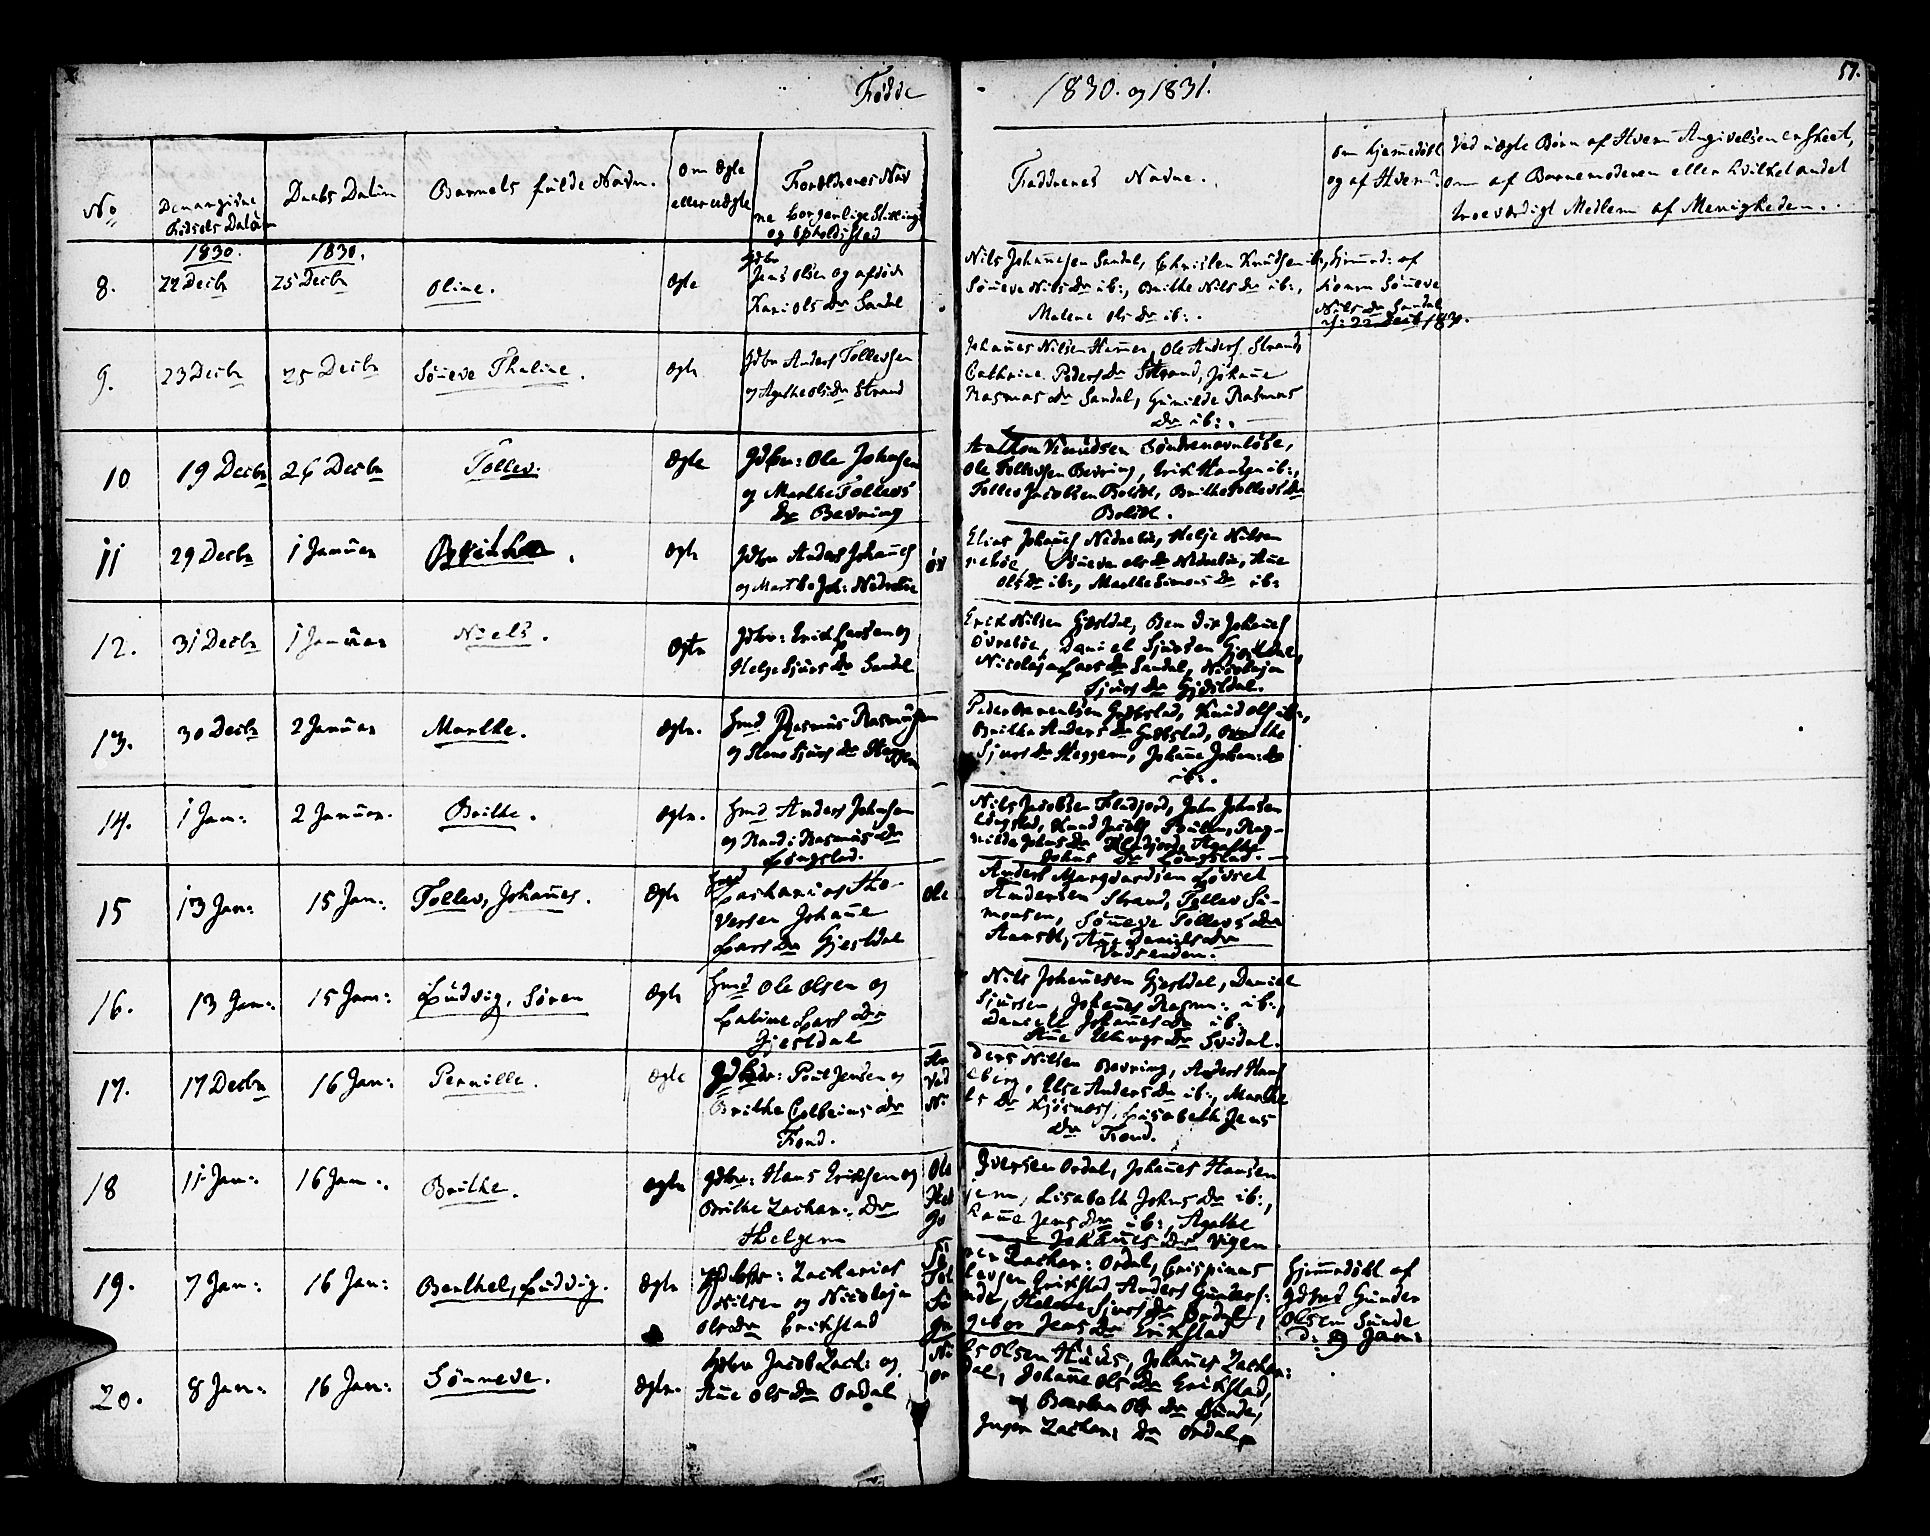 Fødde
1830. og 1831.
57.
No
Den angivne
Fødsels Datum
Daabs Datum
Barnets fulde Navn.
Om Ægte
eller uægte
Forældrenes Nav
ne borgerlige Stilling
og Opholdssted
Faddernes Navne.
Om Hjemmedøbt
og af Hvem?
Ved uægte Børn af Hvem Angivelsen er skeet,
om af Barnemoderen eller hvilket andet
troeværdigt Medlem af Menigheden.
1830.
1830.
8.
22 Decbr
25 Decbr
Oline.
Ægte
Gdbr
Jens Olsen og afdøde
Kari Ols Dr Sandal
Nils Johannesen Sandal, Christen Knudsen ib:,
Sønneve Nils Dr ib:, Brithe Nils Dr ib:,
Malene Ols Dr ib:.
Hjemmed: af
Konen Sønneve
Nils Dr Sandal
d: 22 Decb 1830.
9.
23 Decbr
25 Decbr
Sønneve Thaline.
Ægte
Gdbr Anders Tollevsen
og Agathe Ols Dr Strand
Johannes Nilsen Hamer, Ole Anders. Strand,
Cathrine Peders Dr Strand, Johanne
Rasmus Dr Sandal, Gunilde Rasmus
Dr ib:.
10
19 Decbr
26 Decbr
Tollev.
Ægte
Gdbr: Ole Johnsen
og Marthe Tollevs
Dr Bevring
Anthon Knudsen Søndrenevnløse,
Ole Tollevsen Bevring, Erik Hansen ib:,
Tollev Jacobsen Bolset, Brithe Tollevs Dr
Bolset.
11
29 Decbr
1 Januar
Brithe.
Ægte
Gdbr Anders Johannes
og Marthe Joh: Nedrebøe
Elias Johannes Nedrebøe, Helje Nilsen
Øvrebøe, Sønneve Ols Dr Nedrebøe, Anne
Ols Dr ib:, Marthe Simons Dr ib:
12.
31 Decbr
1 Januar
Niels.
Ægte
Gdbr: Erik Larsen og
Helge Sjurs Dr Sandal
Erik Nilsen Gjesdal, Bendix Johannes
Øvrebøe, Daniel Sjursen Gjesdal,
Nicolaja Lars Dr Sandal, Nicolaja
Sjurs Dr Gjesdal.
13.
30 Decbr
2 Januar
Marthe.
Ægte.
Hmd Rasmus Rasmusen
og Stene Sjurs Dr Heggem
Peder Gabstad, Knud Ols ib:,
Brithe Anders Dr Gabstad, Brithe
Sjurs Dr Heggem, Johanne Johan: Dr
ib:.
14.
1 Jan:
2 Januar.
Brithe.
Ægte.
Hmd Anders Johnsen
og Rand: Rasmus Dr
Løngstad.
Nils Jacobsen Fladjord, John Johnsen
Løngstad, Knud Jacobs Rag-
nilde Johns Dr Fladjord, Agathe
Johns Dr Løngstad.
15
13 Jan:
15 Jan:
Tollev, Johannes.
Ægte
Hmd
Zacharias Tho-
versen Johanne
Lars Dr Gjesdal
Ole
Anders Margvardsen Løvset
Andersen Strand, Tollev Si-
monsen, Sønneve Tollevs Dr
Aarset, Anne Daniels Dr
Vadsenden.
16.
13 Jan:
15 Jan:
Ludvig, Søren
Ægte
Hmd Ole Olsen og
Laline Lars Dr
Gjesdal
Nils Johannesen Gjesdal, Daniel
Sjursen, Johannes Rasm: ib:,
Danielle Johannes Dr ib:
Anne Dr Svidal.
17.
17 Decbr
16 Jan:
Pernille.
Ægte
Gdbr: Poul Jensen og
Brithe Colbeins Dr
Fond.
Anders Nilsen Bevring, Anders Hans
Vadeberg, Else Anders Dr ib:, Marthe
Nils Dr Kjøsnæs, Lisabeth Jens
Dr Fond.
18
11 Jan:
16 Jan:
Brithe.
Ægte
Gdbr: Hans Eriksen og
Brithe Zachar: Dr
Helgem
Ole Iversen Ordal, Johannes Hansen
Helgem, Lisabeth Johns Dr ib:,
Johanne Jens Dr ib:, Agathe
Johannes Dr Vigen.
19.
7 Jan:
16 Jan:
Berthel, Ludvig.
Ægte
Gdbr: Zacharias
Nilsen og Nicolaja
Ols Dr Erikstad
Zachar: Ordal, Crispinus
Tollevsen Erikstad, Anders Gunders:
Sunde, Helene Sjurs Dr Ordal,
Jens Dr Erikstad
Hjemmedøbt af
Gdmd Gunder
Olsen Sunde
d: 9 Jan:
20.
8 Jan:
16 Jan:
Sønneve.
Ægte.
Gdbr Jacob Zach: og
Anne Ols Dr Ordal
Nils Olsen Huus, Johannes Zachar:
Ordal, Johanne Ols Dr Erikstad,
Ols Dr Sunde,
Inger Zachar: Dr Ordal